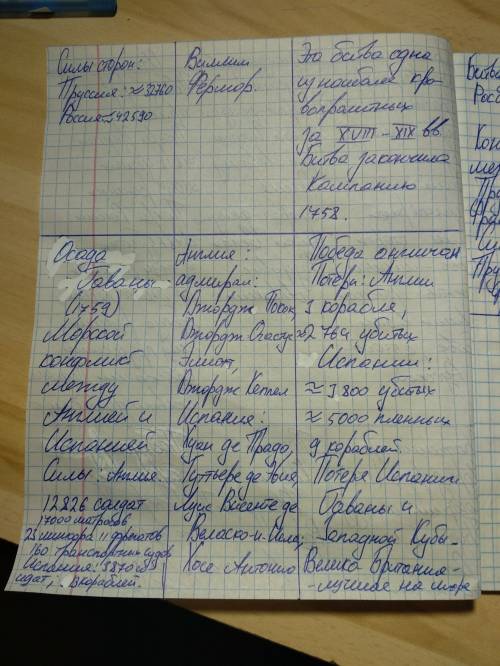 Силы сторон:
Пруссия: ≈32760
Россия: 42590
Виллим
Фермор.
Эта битва одна
из наиболе кро
вопролитных
за XVIII - XIX вв.
Битва закончила
Кампанию
1758.
Осада
Гаваны
(1759)
Морской
конфликт
между
Англией и
Испанией
Силы: Англия:
12826 солдат
17000 матросов
23 линкора 11 фрегатов
160 транспортных судов
Испания: 3870 со
лдат, кораблей.
Англия:
адмирал:
Джордж Покок,
Джордж Огастус
Элиот,
Джордж Кеппел
Испания:
Хуан де Прадо,
Гутьере де Эвия,
Луис Висенте де
Веласко-и-Исла,
Хосе Антонио
Победа англичан
Потери: Англии
3 корабля,
≈2764 убитых
Испании:
≈3800 убитых
≈5000 пленных
9 кораблей.
Потеря Испании
Гаваны и
Западной Кубы.
Велика Британия -
- лучшие на море
Битва
Рос
Кон
меж
Пру
Фра
Пру